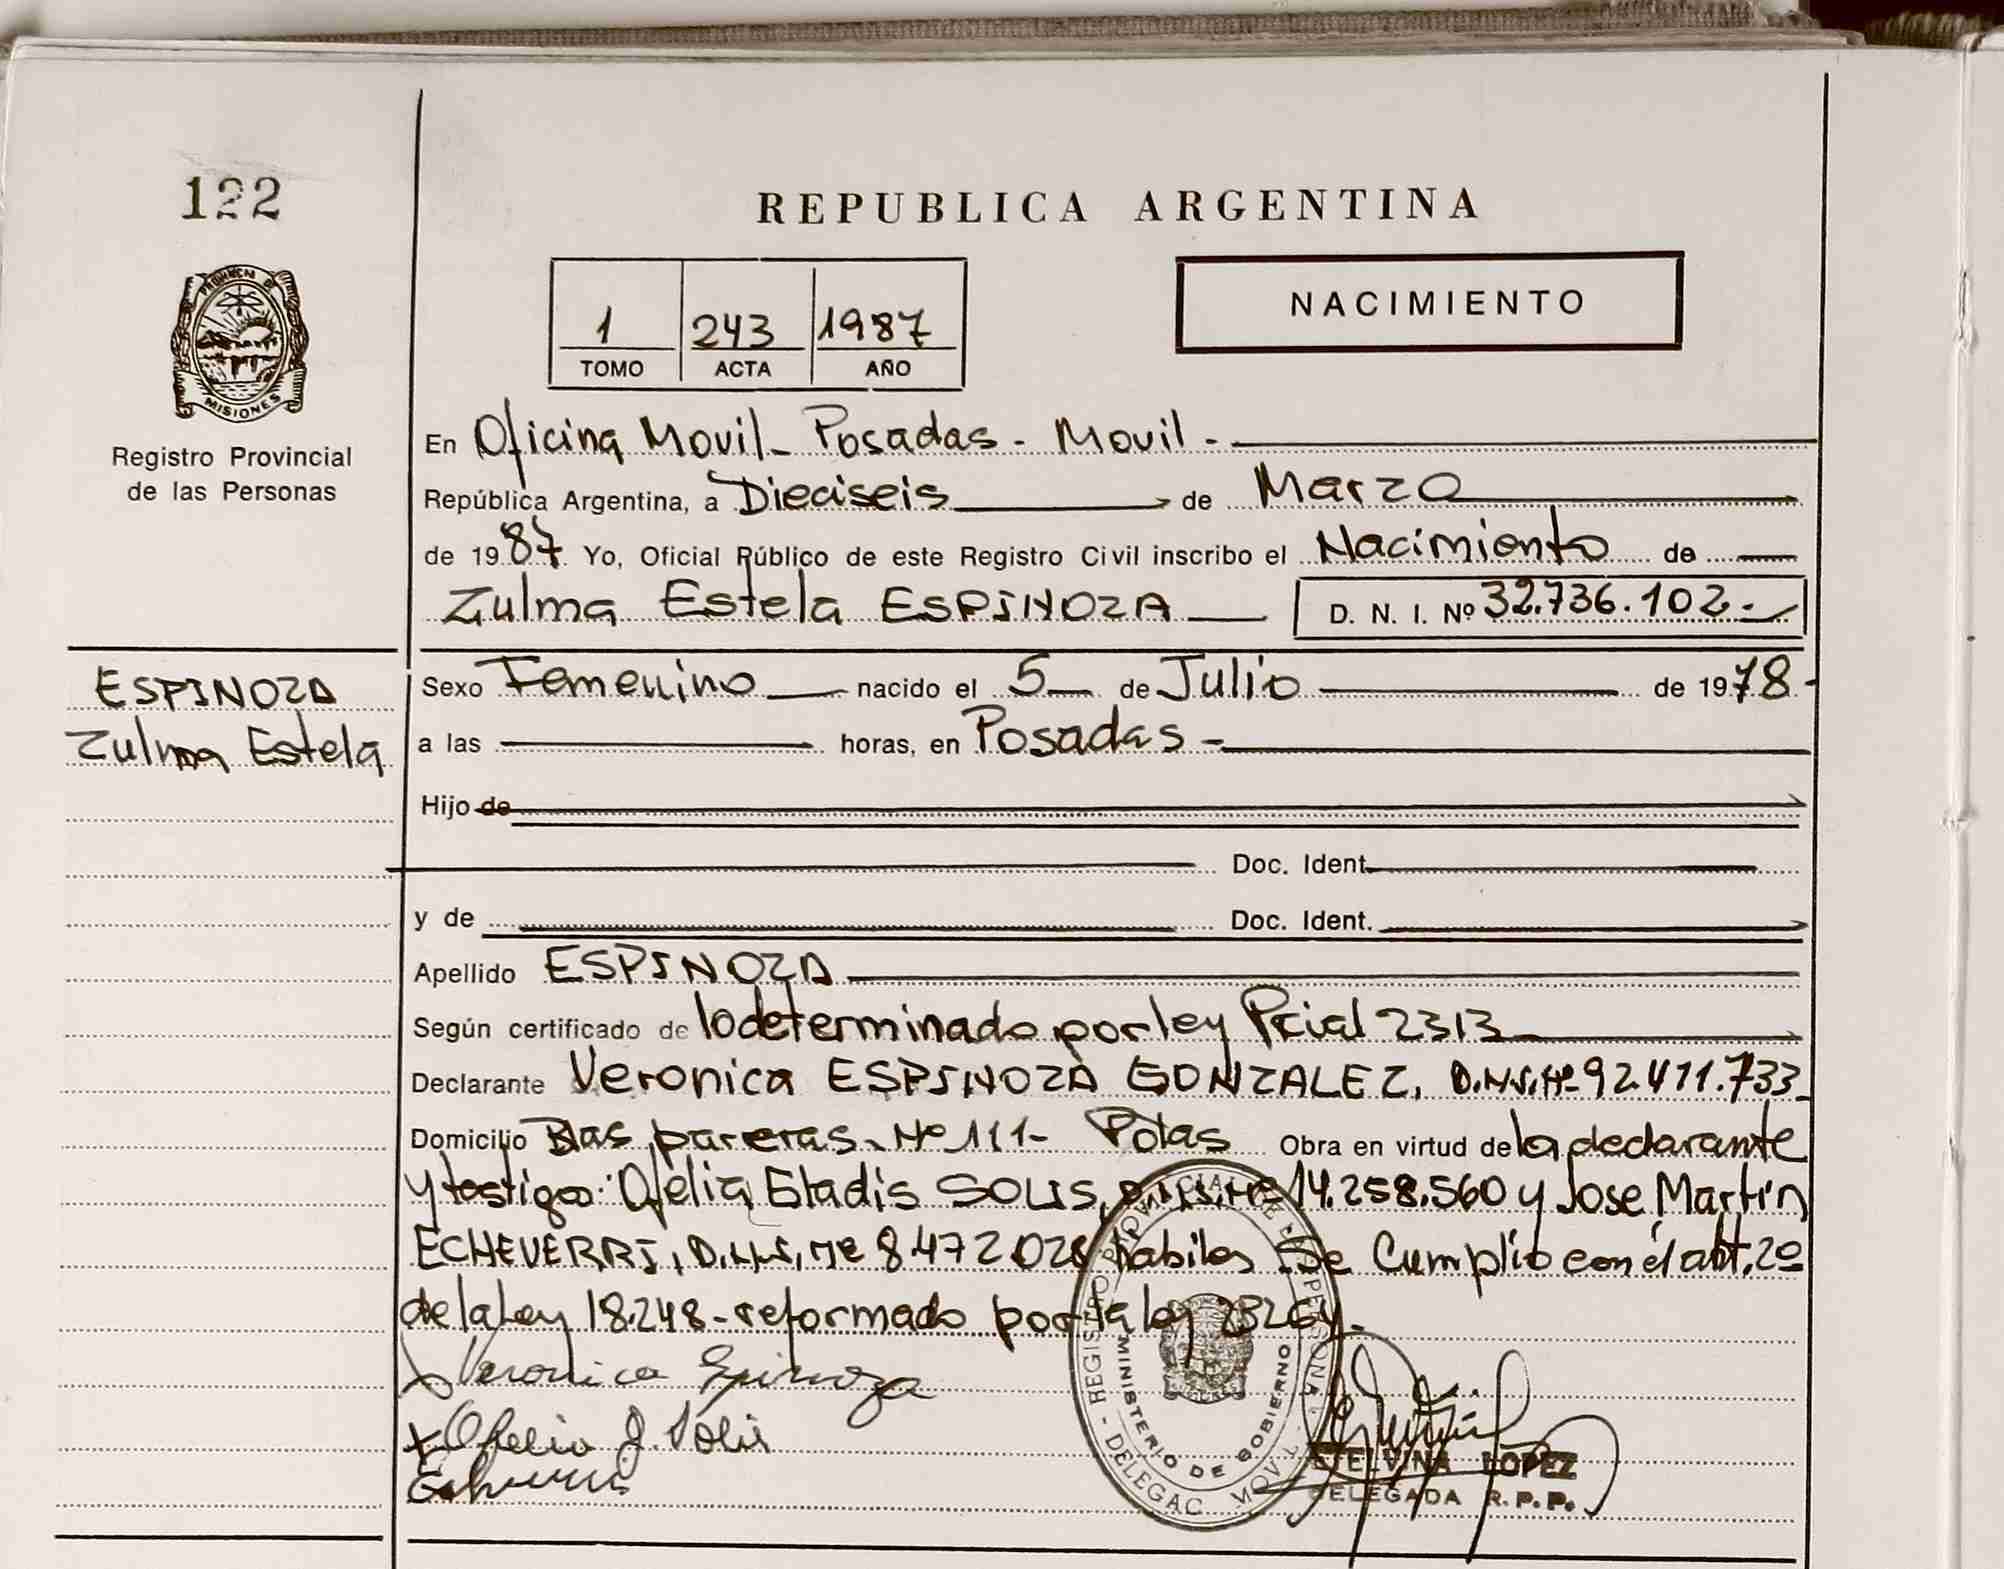 122
PROVINCIA DE
MISIONES
Registro Provincial
de las Personas
REPUBLICA ARGENTINA
1 243 1987
TOMO ACTA AÑO
NACIMIENTO
En Oficina Movil - Posadas - Movil -
República Argentina, a Dieciseis de Marzo
de 1987 Yo, Oficial Público de este Registro Civil inscribo el Nacimiento de
Zulma Estela ESPINOZA D. N. I. Nº 32.736.102.-
ESPINOZA
Zulma Estela
Sexo Femenino nacido el 5 de Julio de 1978.-
a las horas, en Posadas -
Hijo de
Doc. Ident.
y de Doc. Ident.
Apellido ESPINOZA
Según certificado de lo determinado por ley Pcial 2313
Declarante Veronica ESPINOZA GONZALEZ, D.N.I.Nº 92.411.733
Domicilio Blas pareras - Nº 111- Pdas Obra en virtud de la declarante
y testigos: Ofelia Eladis SOLIS, D.N.I.Nº 14.258.560 y Jose Martin
ECHEVERRI, D.N.I. Nº 8.472 028 habiles Se Cumplio con él art. 2º
de la Ley 18.248 - reformado por la ley 23264.
Veronica Espinoza
Ofelia J. Solis
REGISTRO PROVINCIAL DE PERSONA - DELEGAC. MOVIL -
MINISTERIO DE GOBIERNO
ETELVINA LOPEZ
DELEGADA R.P.P.